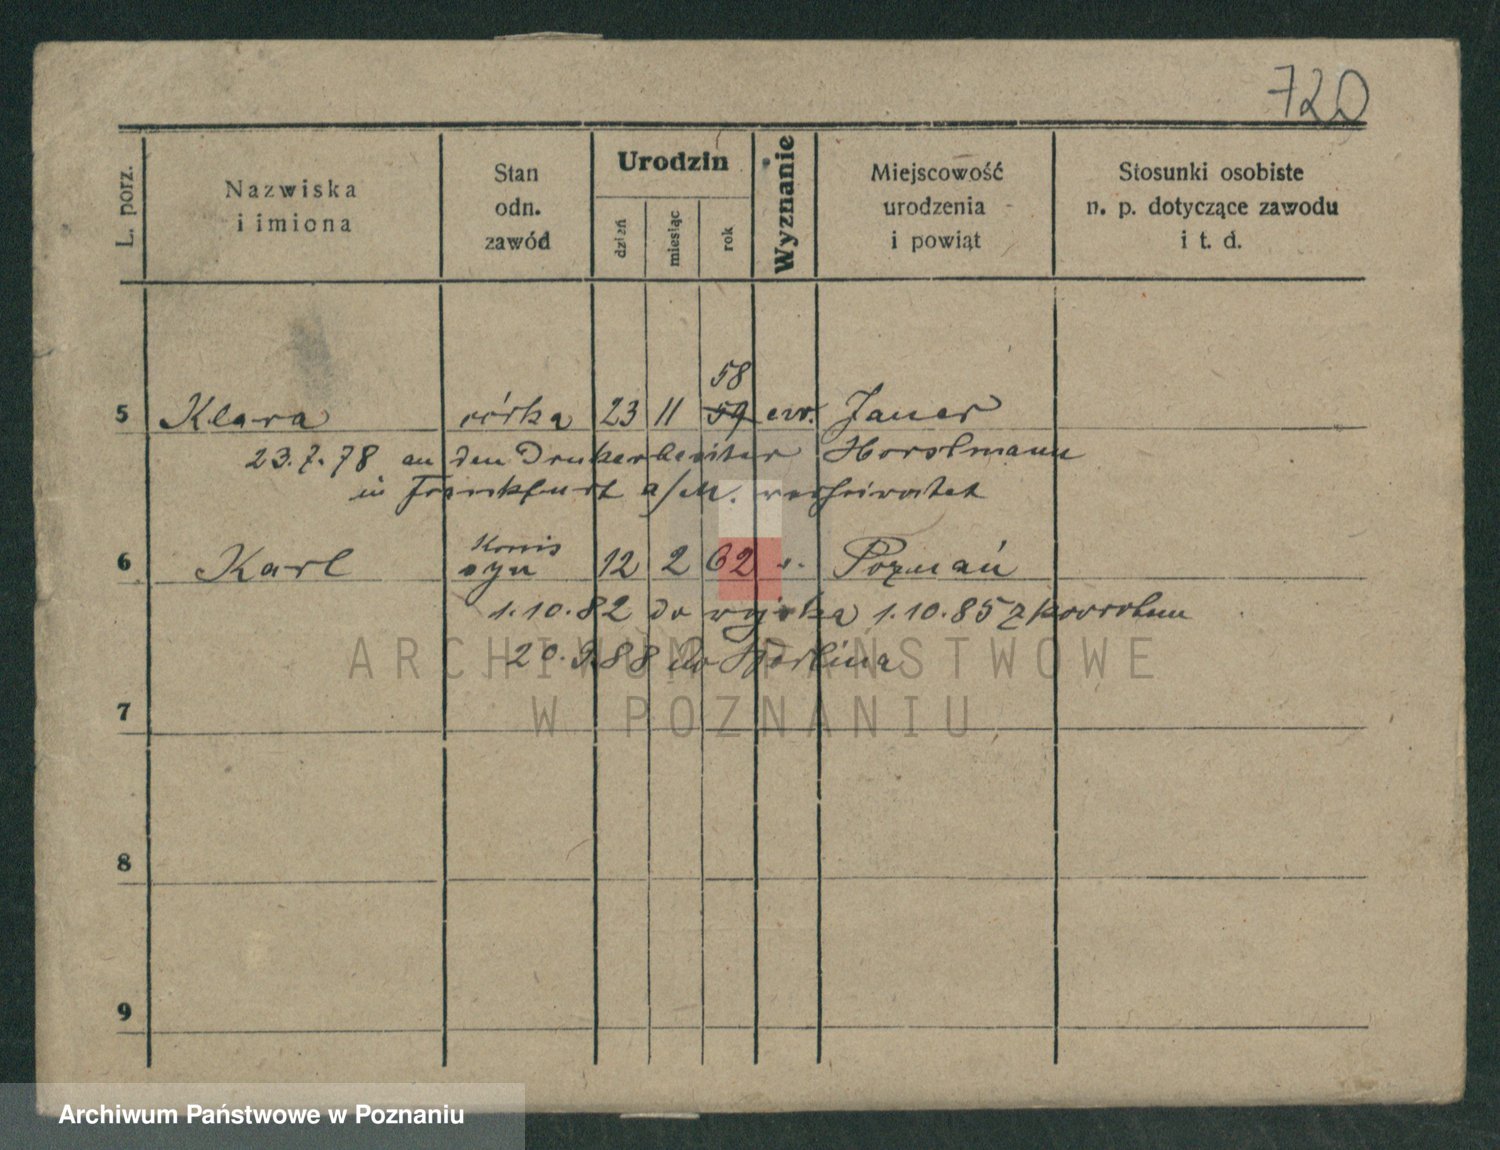 720
L. porz.
Nazwiska
i imiona
Stan
odn.
zawód
Urodzin
dzień
miesiąc
rok
Wyznanie
Miejscowość
urodzenia
i powiąt
Stosunki osobiste
n. p. dotyczące zawodu
i t. d.
58
5 Klara córka 23 11 59 ew. Jauer
23.7.78 an den Druckereibesitzer Horstmann
in Frankfurt a/M. verheiratet
Komis
6 Karl syn 12 2 62 ". Poznań
1.10.82 do wojska 1.10.85 z powrotem
20.9.88 do Berlina
7
8
9
ARCHIWUM PAŃSTWOWE
W POZNANIU
Archiwum Państwowe w Poznaniu